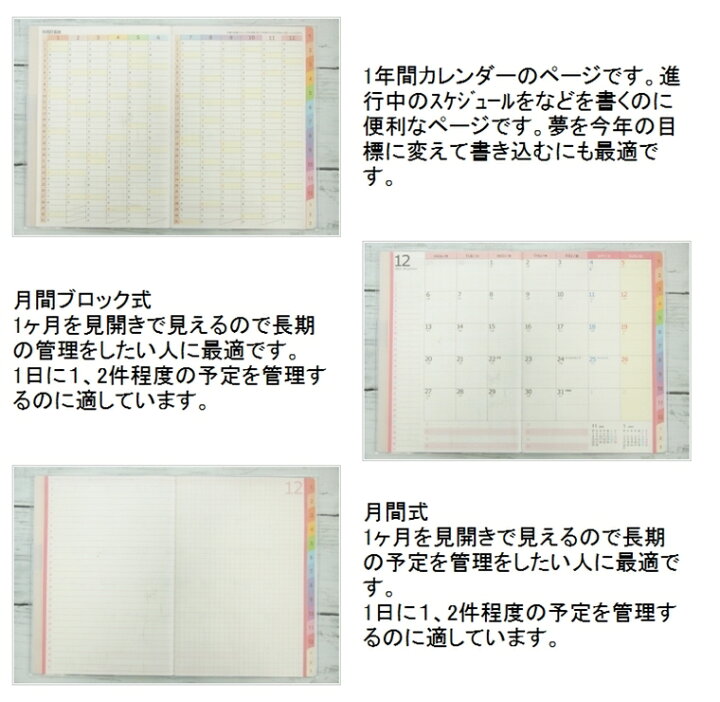 1年間カレンダーのページです。進
行中のｽｹｼﾞｭｰﾙをなどを書くのに
便利なページです。夢を今年の目
標に変えて書き込むにも最適で
す。
12
6 7 8 9 10 11 12
13 14 15 16 17 18 19
20 21 22 23 24 25 26
27 28 29 30 31
月間ブロック式
1ヶ月を見開きで見えるので長期
の管理をしたい人に最適です。
1日に1、2件程度の予定を管理す
るのに適しています。
12
月間式
1ヶ月を見開きで見えるので長期
の予定を管理をしたい人に最適で
す。
1日に1、2件程度の予定を管理す
るのに適しています。